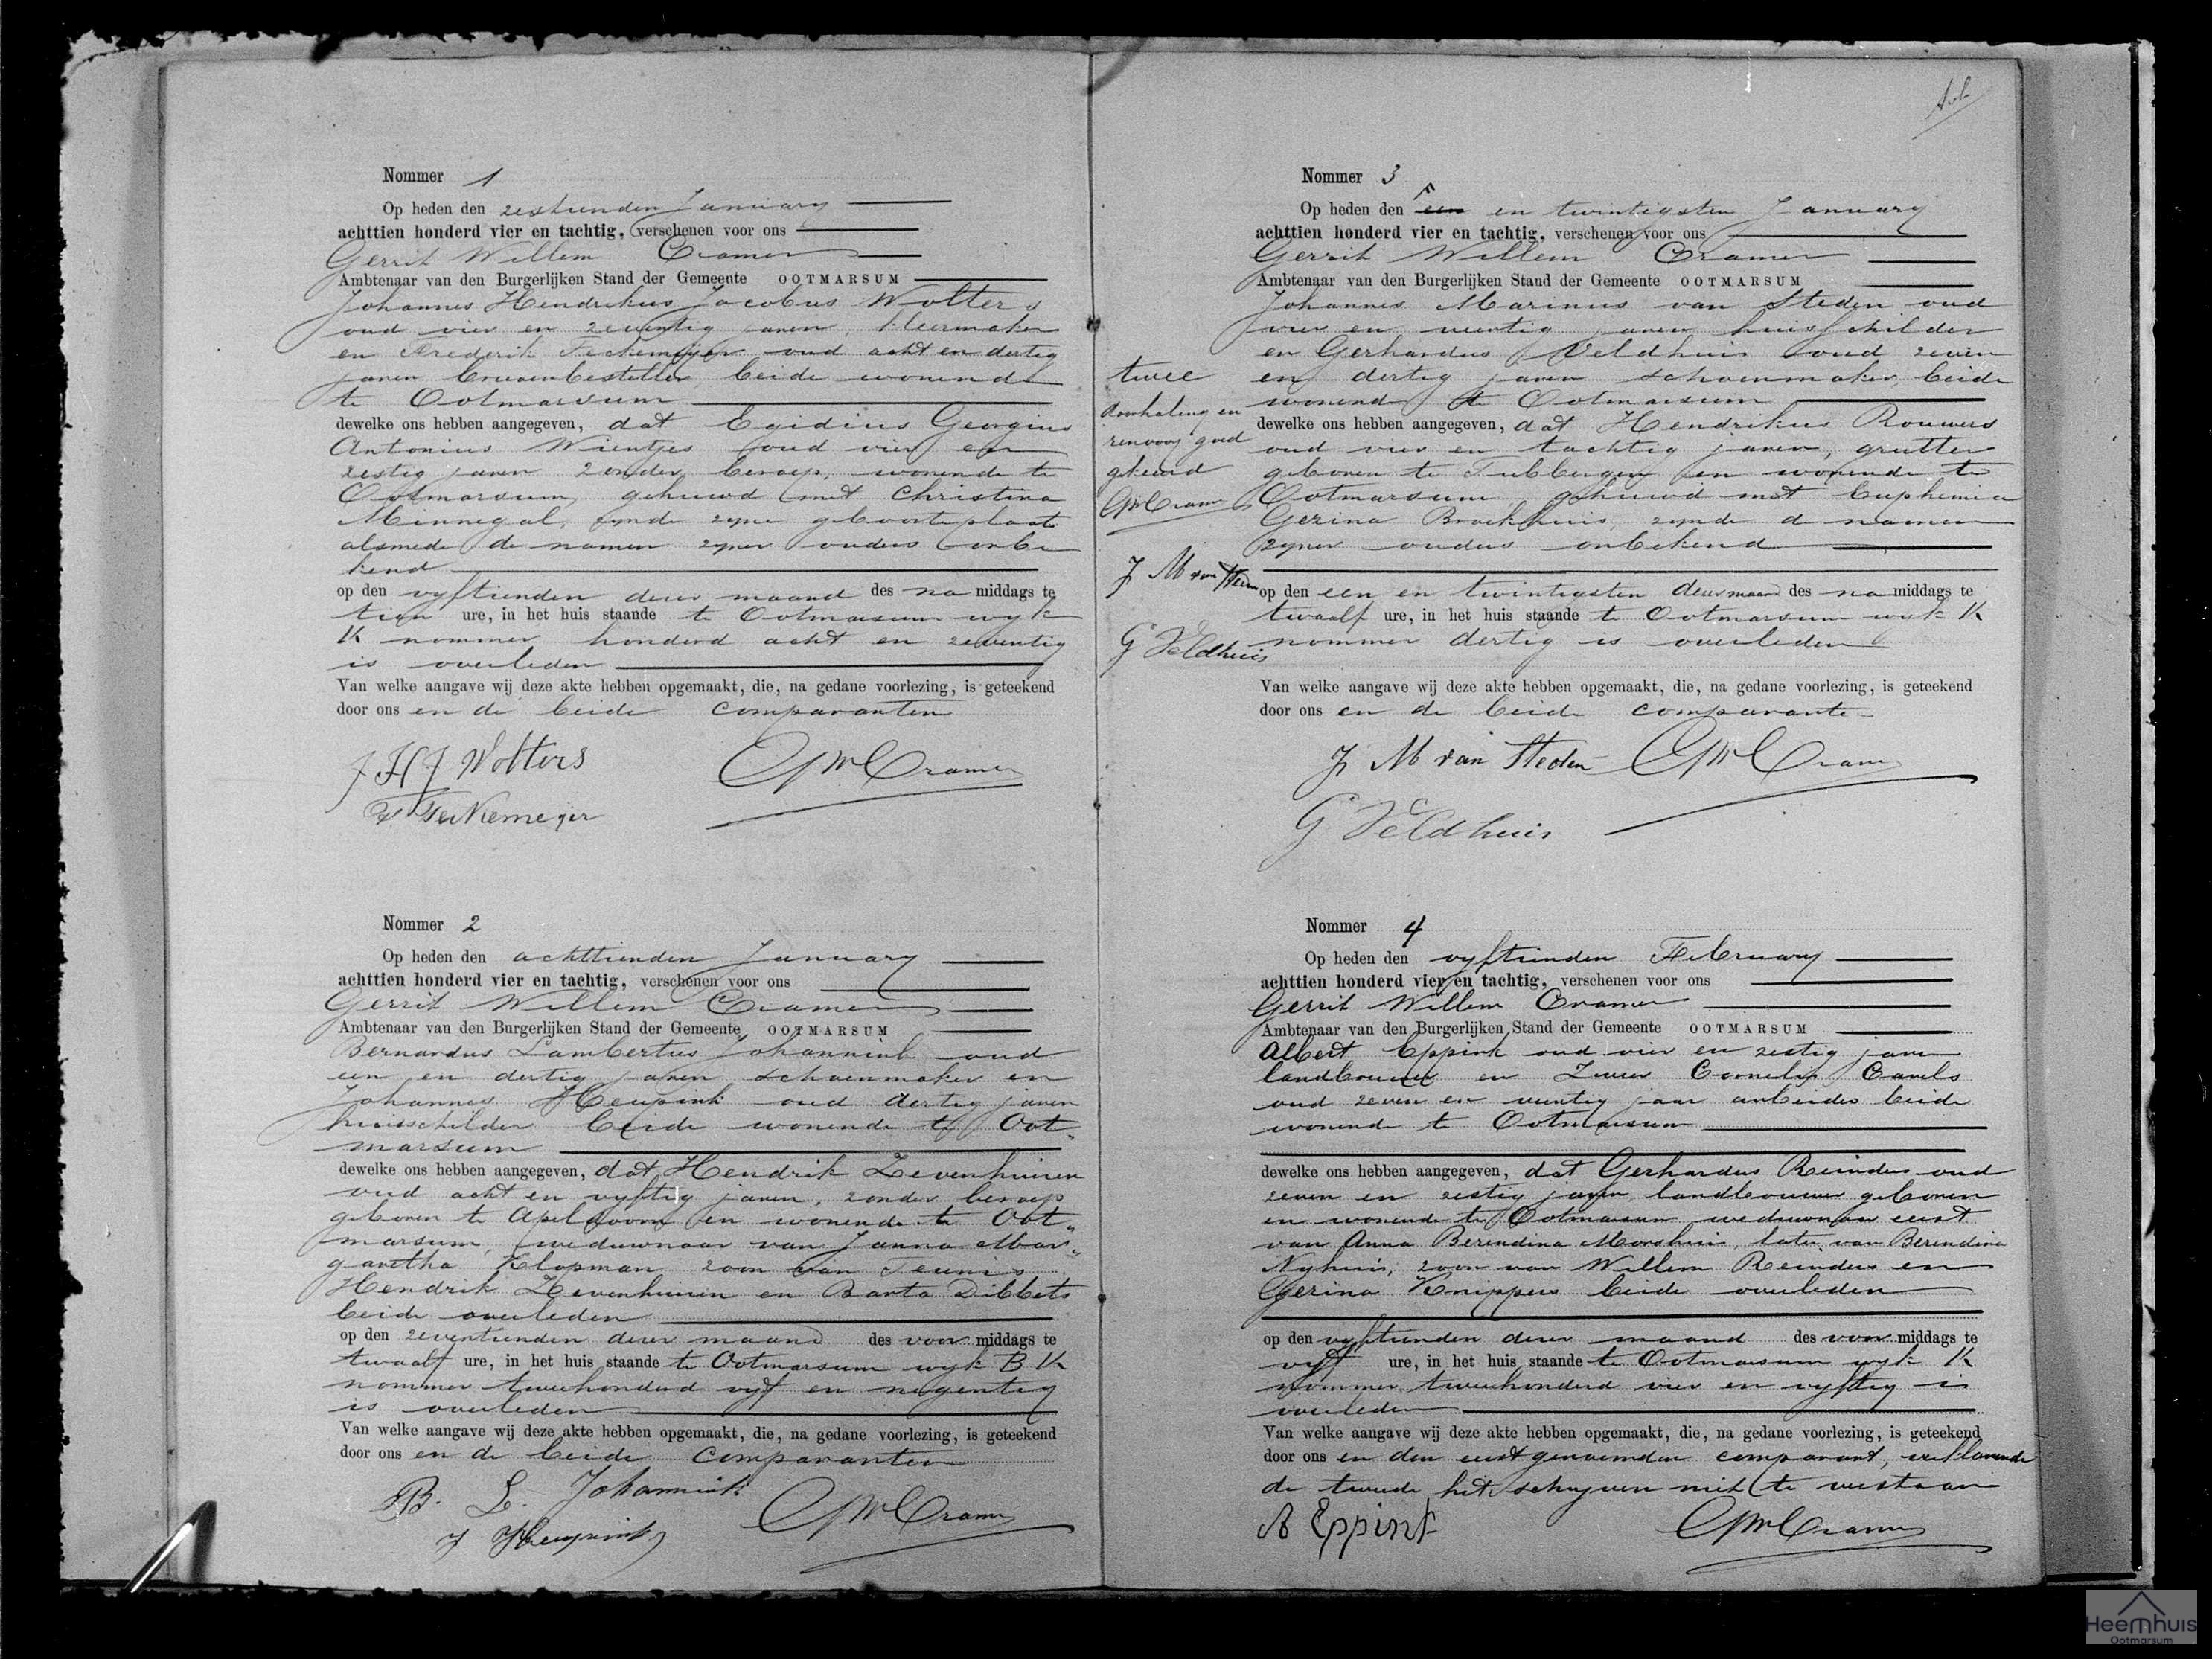 Nommer 1
Op heden den zestienden January
achttien honderd vier en tachtig, verschenen voor ons
Gerrit Willem Cramer
Ambtenaar van den Burgerlijken Stand der Gemeente OOTMARSUM
Johannes Hendrikus Jacobus Wolters
oud vier en zeventig jaren, kleermaker
en Frederik Feckemeijer oud acht en dertig
jaren brievenbesteller beide wonende
te Ootmarsum
dewelke ons hebben aangegeven, dat Egidius Georgius
Antonius Wientjes oud vier en
zestig jaren zonder beroep, wonende te
Ootmarsum, gehuwd met Christina
Minnegal, zynde zyne geboorteplaats
alsmede de namen zyner ouders onbe
kend
op den vyftienden dezer maand des na middags te
tien ure, in het huis staande te Ootmarsum wyk
K nommer honderd acht en zeventig
is overleden
Van welke aangave wij deze akte hebben opgemaakt, die, na gedane voorlezing, is geteekend
door ons en de beide comparanten
J H J Wolters GWCramer
F Feckemeijer
Nommer 2
Op heden den achttienden January
achttien honderd vier en tachtig, verschenen voor ons
Gerrit Willem Cramer
Ambtenaar van den Burgerlijken Stand der Gemeente OOTMARSUM
Bernardus Lambertus Johannink oud
een en dertig jaren schoenmaker en
Johannes Heupink oud dertig jaren
huisschilder beide wonende te Oot„
marsum
dewelke ons hebben aangegeven, dat Hendrik Zevenhuizen
oud acht en vyftig jaren, zonder beroep
geboren te Apeldoorn en wonende te Oot„
marsum, weduwnaar van Janna Mar„
garetha Klopman zoon van Teunis
Hendrik Zevenhuizen en Barta Dibbets
beide overleden
op den zeventienden dezer maand des voor middags te
twaalf ure, in het huis staande te Ootmarsum wyk B K
nommer tweehonderd vyf en negentig
is overleden
Van welke aangave wij deze akte hebben opgemaakt, die, na gedane voorlezing, is geteekend
door ons en de beide comparanten
B. L. Johannink GWCramer
J Heupink
Nommer 3
Op heden den een en twintigsten January
achttien honderd vier en tachtig, verschenen voor ons
Gerrit Willem Cramer
Ambtenaar van den Burgerlijken Stand der Gemeente OOTMARSUM
Johannes Marinus van Steden oud
vier en veertig jaren huisschilder
en Gerhardus Veldhuis oud zeven
en dertig jaren schoenmaker, beide
wonend te Ootmarsum
dewelke ons hebben aangegeven, dat Hendrikus Rouwers
oud vier en tachtig jaren, grutter
geboren te Tubbergen en wonende te
Ootmarsum gehuwd met Euphemia
Gezina Broekhuis, zynde d namen
zyner ouders onbekend
op den een en twintigsten dezer maand des na middags te
twaalf ure, in het huis staande te Ootmarsum wyk K
nommer dertig is overleden
Van welke aangave wij deze akte hebben opgemaakt, die, na gedane voorlezing, is geteekend
door ons en de beide comparante
J M van Steden GWCramer
G Veldhuis
twee
doorhaling en
renvooy goed
gkeurd
GWCramer
J M van Steden
G Veldhuis
Nommer 4
Op heden den vyftienden February
achttien honderd vier en tachtig, verschenen voor ons
Gerrit Willem Cramer
Ambtenaar van den Burgerlijken Stand der Gemeente OOTMARSUM
Albert Eppink oud vier en zestig jaren
landbouwer en Zwier Cornelis Carels
oud zeven en veertig jaar arbeider beide
wonende te Ootmarsum
dewelke ons hebben aangegeven, dat Gerhardus Reinders oud
zeven en zestig jaren landbouwer geboren
en wonende te Ootmarsum weduwnaar eerst
van Anna Berendina Morshuis, later van Berendina
Nyhuis, zoon van Willem Reinders en
Gerina Knippers beide overleden
op den vyftienden dezer maand des voor middags te
vyf ure, in het huis staande te Ootmarsum wyk K
nommer tweehonderd vier en vyftig is
overleden
Van welke aangave wij deze akte hebben opgemaakt, die, na gedane voorlezing, is geteekend
door ons en den eerstgenoemden comparant, verklarende
de tweede het schryven niet te verstaan
A Eppink GWCramer
Heemhuis
Ootmarsum